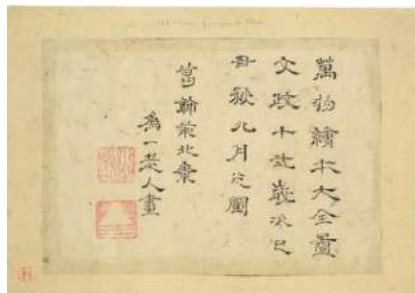 萬物繪本大全畫
文政十弐歳次己
丑秋九月之圖
葛飾前北齋
為一老人畫